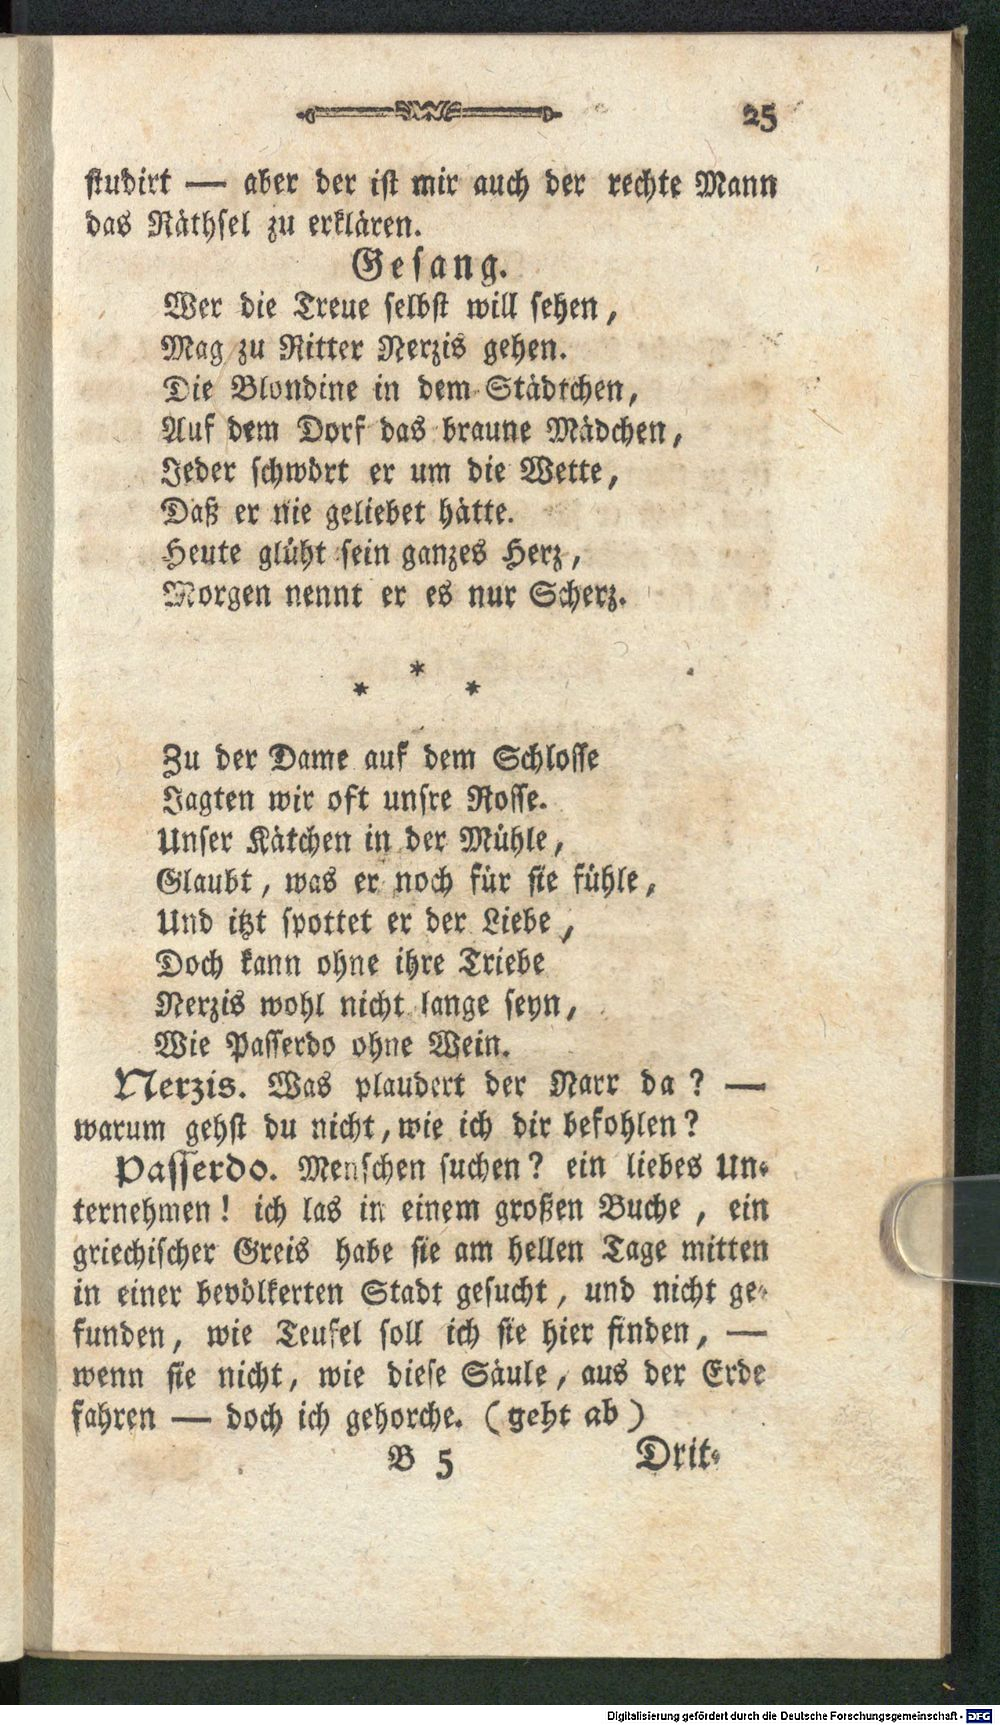 25
studirt — aber der ist mir auch der rechte Mann
das Räthsel zu erklären.
Gesang.
Wer die Treue selbst will sehen,
Mag zu Ritter Nerzis gehen.
Die Blondine in dem Städtchen,
Auf dem Dorf das braune Mädchen,
Jeder schwört er um die Wette,
Daß er nie geliebet hätte.
Heute glüht sein ganzes Herz,
Morgen nennt er es nur Scherz.
*
* *
Zu der Dame auf dem Schlosse
Jagten wir oft unsre Rosse.
Unser Kätchen in der Mühle,
Glaubt, was er noch für sie fühle,
Und itzt spottet er der Liebe,
Doch kann ohne ihre Triebe
Nerzis wohl nicht lange seyn,
Wie Passerdo ohne Wein.
Nerzis. Was plaudert der Narr da? —
warum gehst du nicht, wie ich dir befohlen?
Passerdo. Menschen suchen? ein liebes Un-
ternehmen! ich las in einem großen Buche, ein
griechischer Greis habe sie am hellen Tage mitten
in einer bevölkerten Stadt gesucht, und nicht ge-
funden, wie Teufel soll ich sie hier finden, —
wenn sie nicht, wie diese Säule, aus der Erde
fahren — doch ich gehorche. (geht ab)
B 5 Drit-
Digitalisierung gefördert durch die Deutsche Forschungsgemeinschaft - DFG